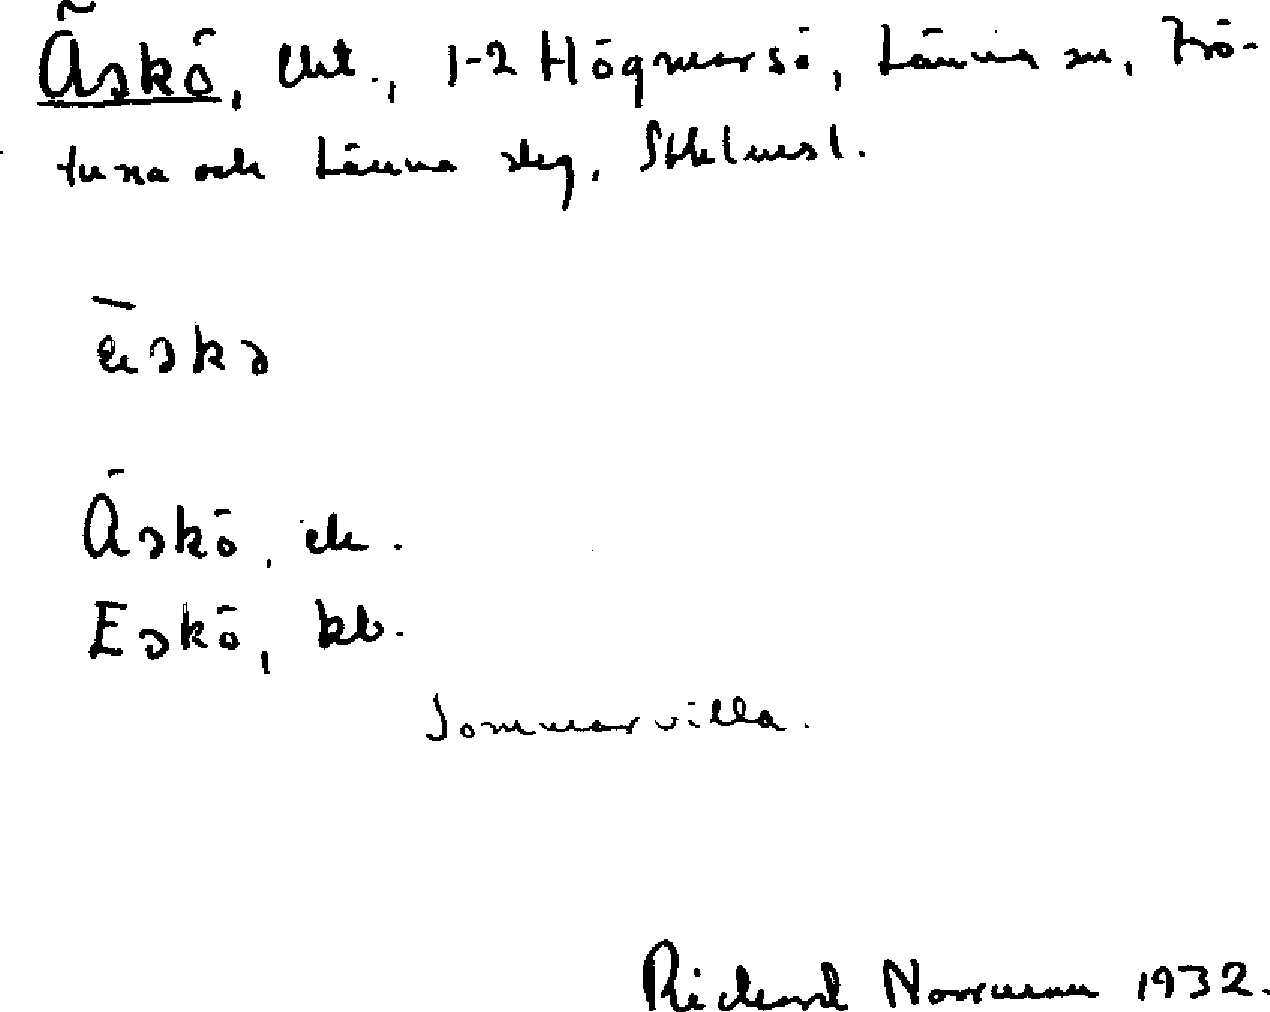 Äskö, lht., 1-2 Högmarsö, Länna sn, Frö-
tuna och Länna skg, Sthlmsl.
äskə
Äskö, ek.
Eskö, kb.
Sommarvilla.
Rickard Norrman 1932.